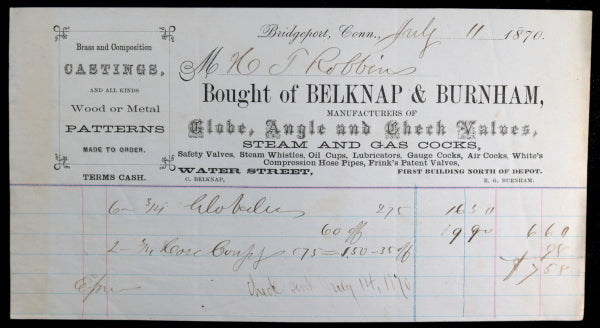 Bridgeport, Conn., July 11 1870.
Brass and Composition
CASTINGS,
AND ALL KINDS
Wood or Metal
PATTERNS
MADE TO ORDER.
TERMS CASH.
M H T Robbins
Bought of BELKNAP & BURNHAM,
MANUFACTURERS OF
Globe, Angle and Check Valves,
STEAM AND GAS COCKS,
Safety Valves, Steam Whistles, Oil Cups, Lubricators, Gauge Cocks, Air Cocks, White's
Compression Hose Pipes, Frink's Patent Valves,
WATER STREET, FIRST BUILDING NORTH OF DEPOT.
C. BELKNAP, E. G. BURNHAM.
6 - 3/4 Globe 275 1650
60 off 990 660
2 - 3/4 Hose 75 = 150 - 35 off 98
$ 758
Check sent July 14, 1870